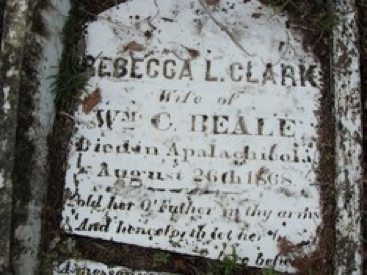 REBECCA L. CLARK
Wife of
Wm C. BEALE
Died in Apalachicola
August 26th 1868
Fold her O' Father in thy arms
And henceforth let her be